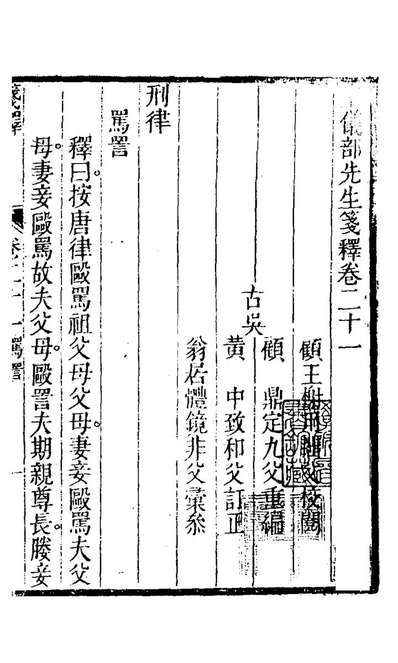 儀部先生箋釋卷二十一
古吳
顧
顧 鼎定九父重編
黃 中致和父訂正
翁 體鏡非父彙參
刑律
罵詈
釋曰按唐律毆罵祖父母父母妻妾毆罵夫父
母妻妾毆罵故夫父母毆詈夫期親尊長媵妾
箋釋 卷二十一 罵詈 一